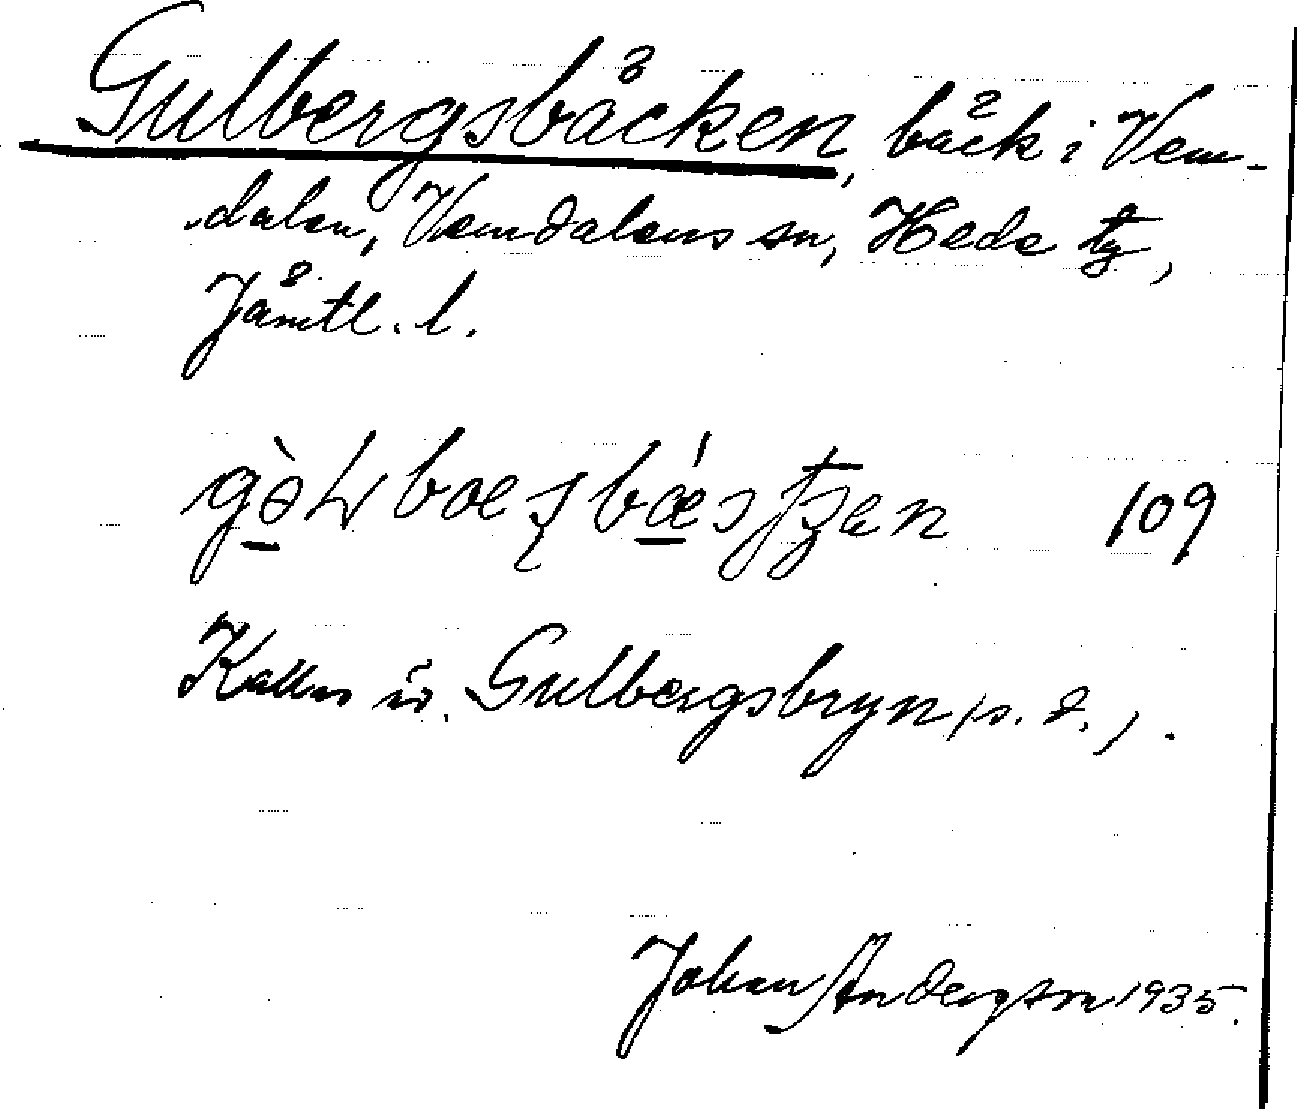 Gulbergsbäcken, bäck i Vem-
dalen, Vemdalens sn, Hede tg,
Jämtl. l.
109
Kallas äv. Gulbergsbryn (s. d.).
Johan Andersson 1935.